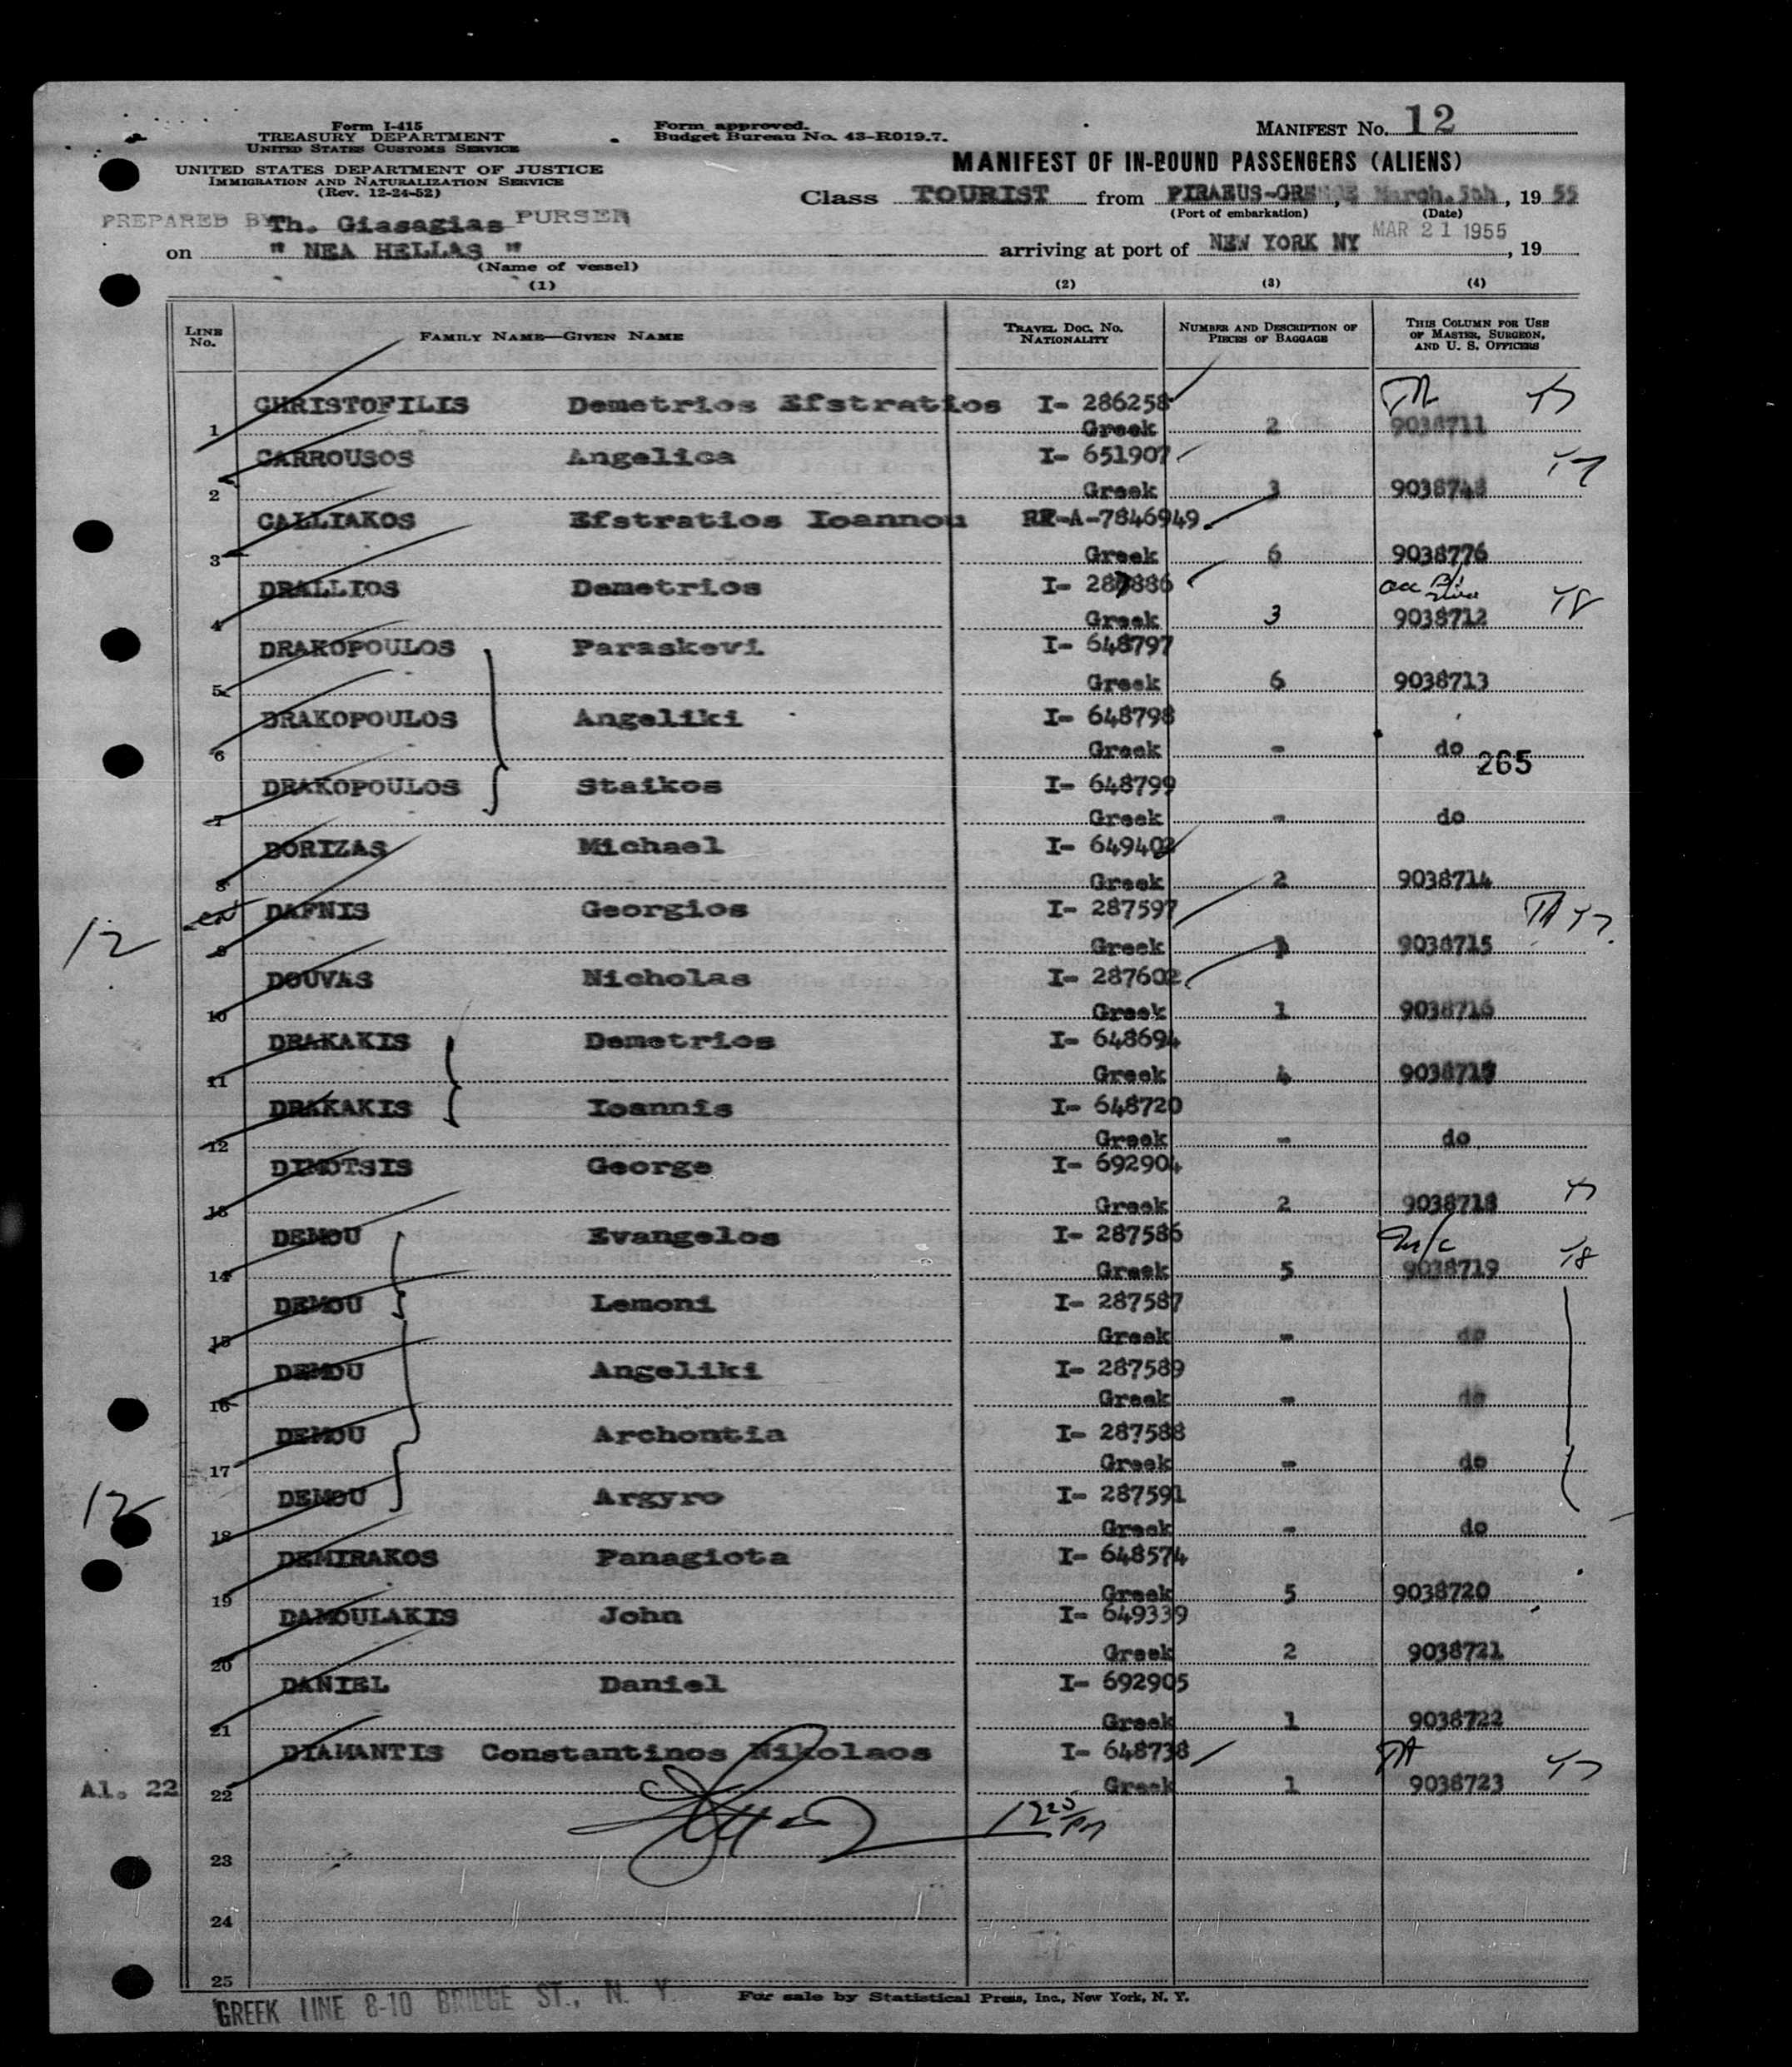 Form I-415
TREASURY DEPARTMENT
UNITED STATES CUSTOMS SERVICE
UNITED STATES DEPARTMENT OF JUSTICE
IMMIGRATION AND NATURALIZATION SERVICE
(Rev. 12-24-52)
Form approved.
Budget Bureau No. 43-R019.7.
MANIFEST NO. 12
MANIFEST OF IN-BOUND PASSENGERS (ALIENS)
Class TOURIST from PIRAEUS-GREECE, March 5th, 19 55
(Port of embarkation) (Date)
PREPARED BY Th. Giasagias PURSER
on " NEA HELLAS " arriving at port of NEW YORK NY MAR 21 1955, 19
(Name of vessel)
(1) (2) (3) (4)
LINE No. FAMILY NAME—GIVEN NAME TRAVEL DOC. NO. NATIONALITY NUMBER AND DESCRIPTION OF PIECES OF BAGGAGE THIS COLUMN FOR USE OF MASTER, SURGEON, AND U. S. OFFICERS
CHRISTOFILIS Demetrios Efstratios I- 286258
1 Greek 2 9038711
CARROUSOS Angelica I- 651907
2 Greek 3 9038748
CALLIAKOS Efstratios Ioannou RE-A-7846949
3 Greek 6 9038776
DRALLIOS Demetrios I- 287886
4 Greek 3 9038712
DRAKOPOULOS Paraskevi I- 648797
5 Greek 6 9038713
DRAKOPOULOS Angeliki I- 648798
6 Greek - do
265
DRAKOPOULOS Staikos I- 648799
7 Greek - do
BORIZAS Michael I- 649402
8 Greek 2 9038714
DAFNIS Georgios I- 287597
12
9 Greek 9038715
DOUVAS Nicholas I- 287602
10 Greek 1 9038716
DRAKAKIS Demetrios I- 648694
11 Greek 4 9038717
DRAKAKIS Ioannis I- 648720
12 Greek - do
DIMOTSIS George I- 692904
13 Greek 2 9038718
DEMOU Evangelos I- 287586
14 Greek 5 9038719
DEMOU Lemoni I- 287587
15 Greek - do
DEMOU Angeliki I- 287589
16 Greek - do
DEMOU Archontia I- 287588
17 Greek - do
DEMOU Argyro I- 287591
12
18 Greek - do
DEMIRAKOS Panagiota I- 648574
19 Greek 5 9038720
DAMOULAKIS John I- 649339
20 Greek 2 9038721
DANIEL Daniel I- 692905
21 Greek 1 9038722
DIAMANTIS Constantinos Nikolaos I- 648738
Al. 22 22 Greek 1 9038723
12 20/PM
23
24
25
GREEK LINE 8-10 BRIDGE ST., N. Y.
For sale by Statistical Press, Inc., New York, N. Y.